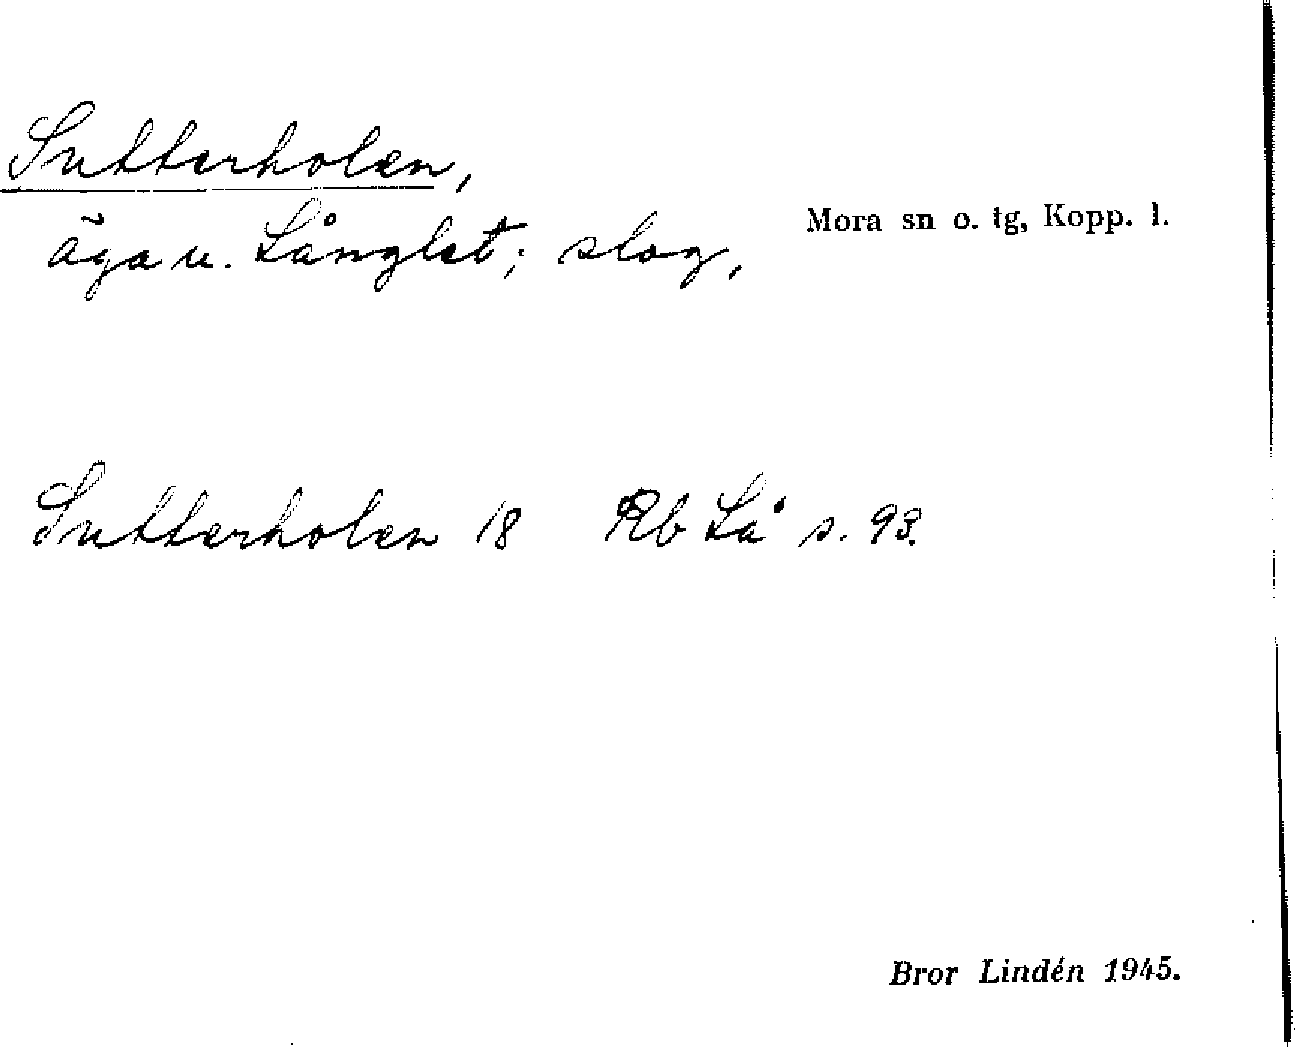 Sutterholen,
Mora sn o. tg, Kopp. l.
äga u. Långlet; slog,
Sutterholen 18 Rb Lå s. 93.
Bror Lindén 1945.